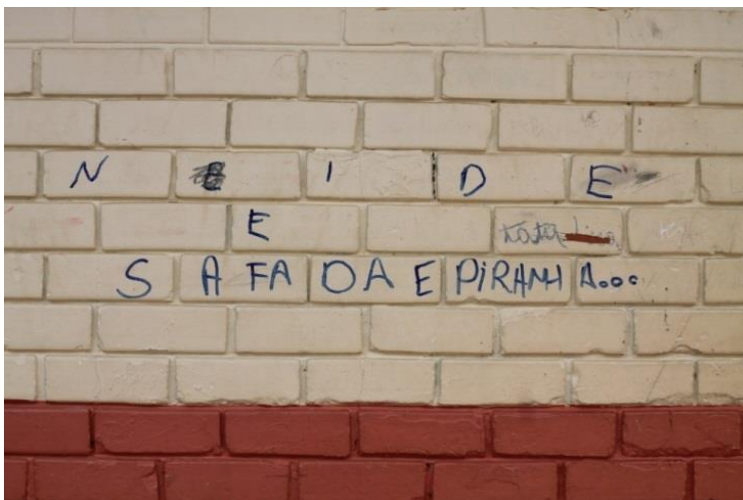 NEIDE
E
SAFADA E PIRANHA...